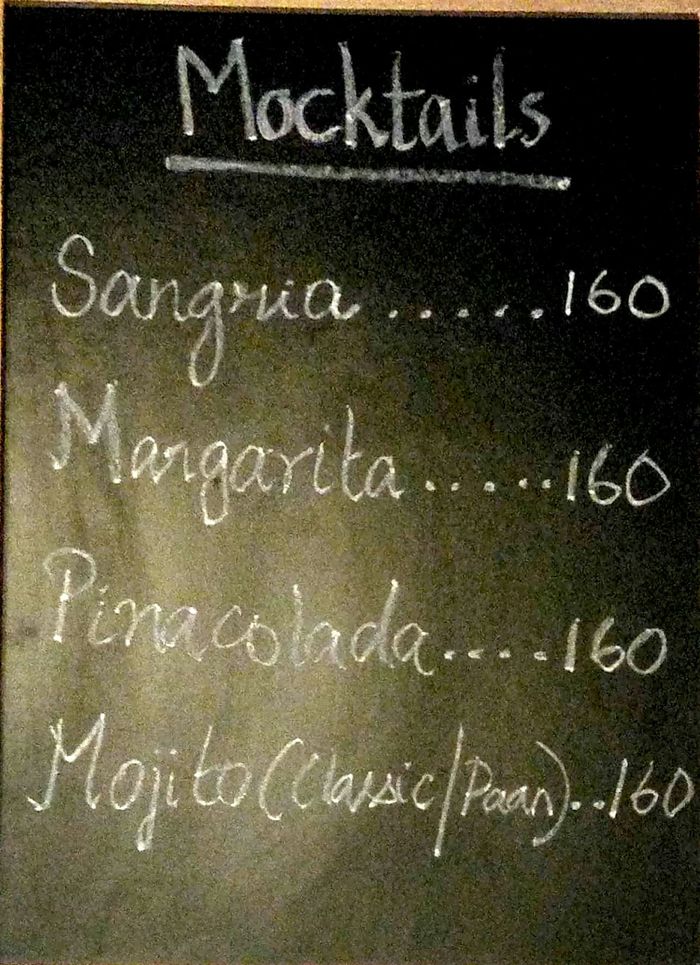 Mocktails
Sangria.....160
Margarita.....160
Pinacolada....160
Mojito(Classic/Paan)..160